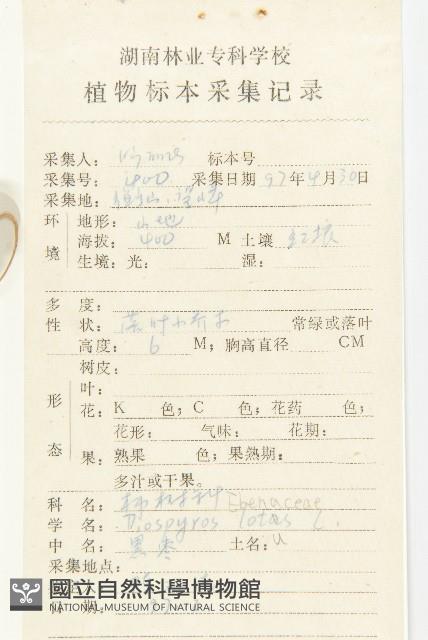 湖南林业专科学校
植物标本采集记录
采集人： 标本号
采集号：400 采集日期 97年4月30日
采集地：
环境 地形：山地
海拔：400 M 土壤 红壤
生境：光： 湿：
多度：
性状：落叶小乔木 常绿或落叶
高度：6 M；胸高直径 CM
树皮：
形态 叶：
花：K 色；C 色；花药 色；
花形： 气味： 花期：
果：熟果 色；果熟期：
多汁或干果。
科名：柿树科 Ebenaceae
学名：Diospyros lotus L.
中名：黑枣 土名：
采集地点：
國立自然科學博物館
NATIONAL MUSEUM OF NATURAL SCIENCE
期：